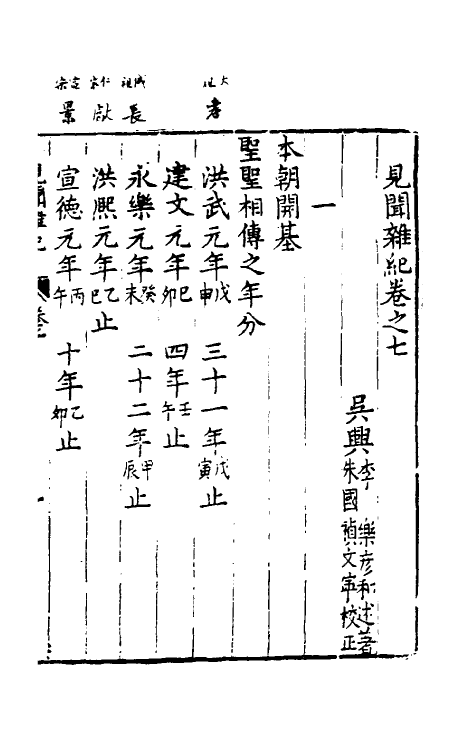 見聞雜紀卷之七
吳興李　樂彥和述著
朱國禎文寧校正
一
本朝開基
聖聖相傳之年分
太祖　孝
洪武元年戊申　三十一年戊寅止
建文元年巳卯　四年壬午止
成祖　長
永樂元年癸未　二十二年甲辰止
仁宗　獻
洪熙元年乙巳止
宣宗　景
宣德元年丙午　十年乙卯止
見聞雜紀